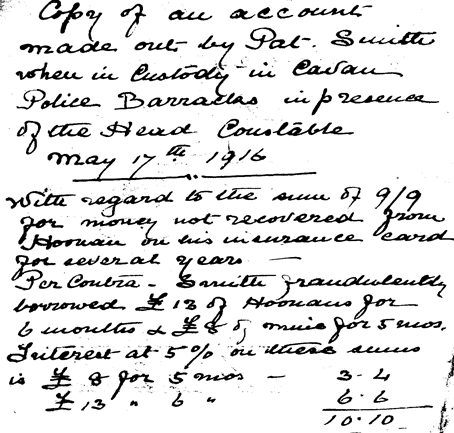 Copy of an account
made out by Pat. Smith
when in Custody in Cavan
Police Barracks in presence
of the Head Constable
May 17th 1916
With regard to the sum of 9/9
for money not recovered from
Hoonan on his insurance card
for several years —
Per Contra - Smith fraudulently
borrowed £13 of Hoonans for
6 months & £8 of mine for 5 mos.
Interest at 5% on these sums
is £8 for 5 mos — 3.4
£13 " 6 " 6.6
10.10